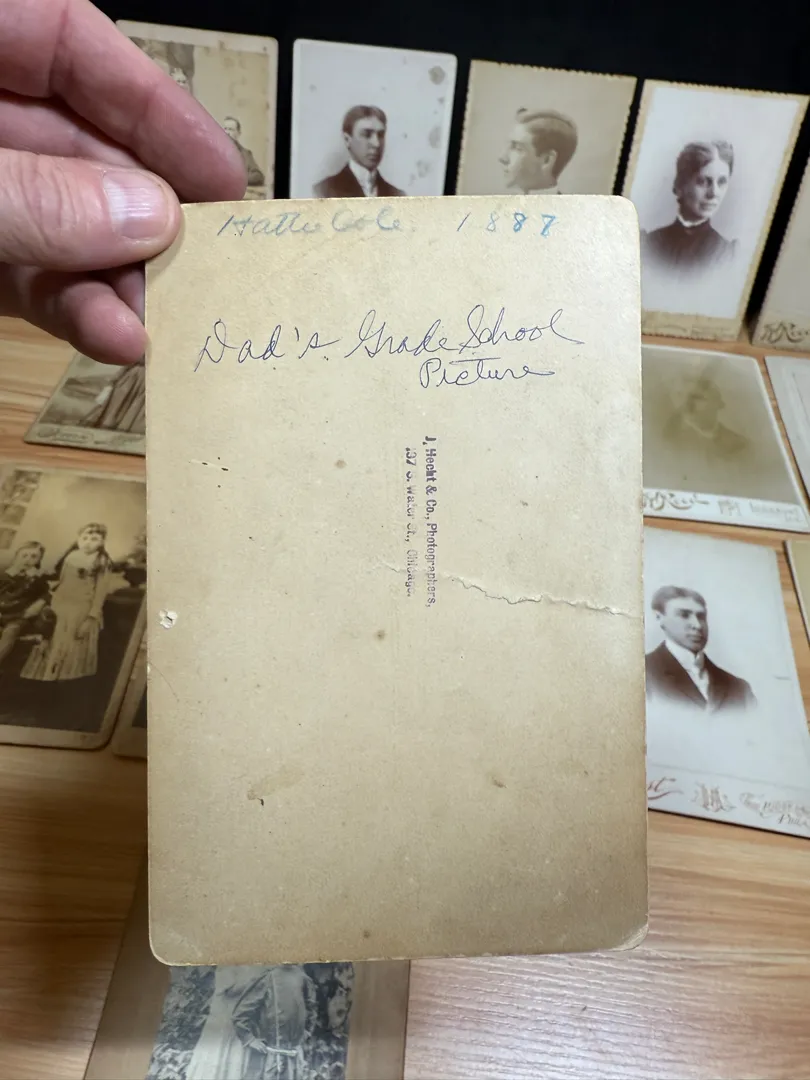 Hattie Cole 1887
Dad's Grade School
Picture
J. Hecht & Co., Photographers,
137 S. Water St., Chicago.